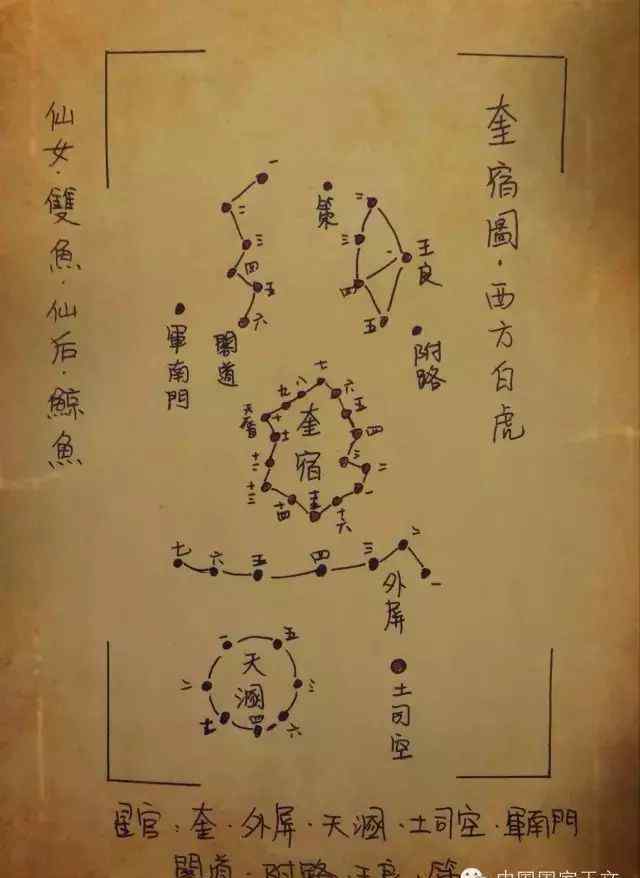 奎宿圖·西方白虎
仙女·雙魚·仙后·鯨魚
一
二
三
四
五
六
閣道
軍南門
策
二
三
一
四
五
王良
附路
七
八
九
六
五
十
四
天廥
十一
奎宿
三
二
十二
十三
一
十四
十六
七
六
五
四
三
二
一
外屏
一
五
天溷
二
三
七
四
六
土司空
星官:奎·外屏·天溷·土司空·軍南門
閣道·附路·王良·策
中国国家天文